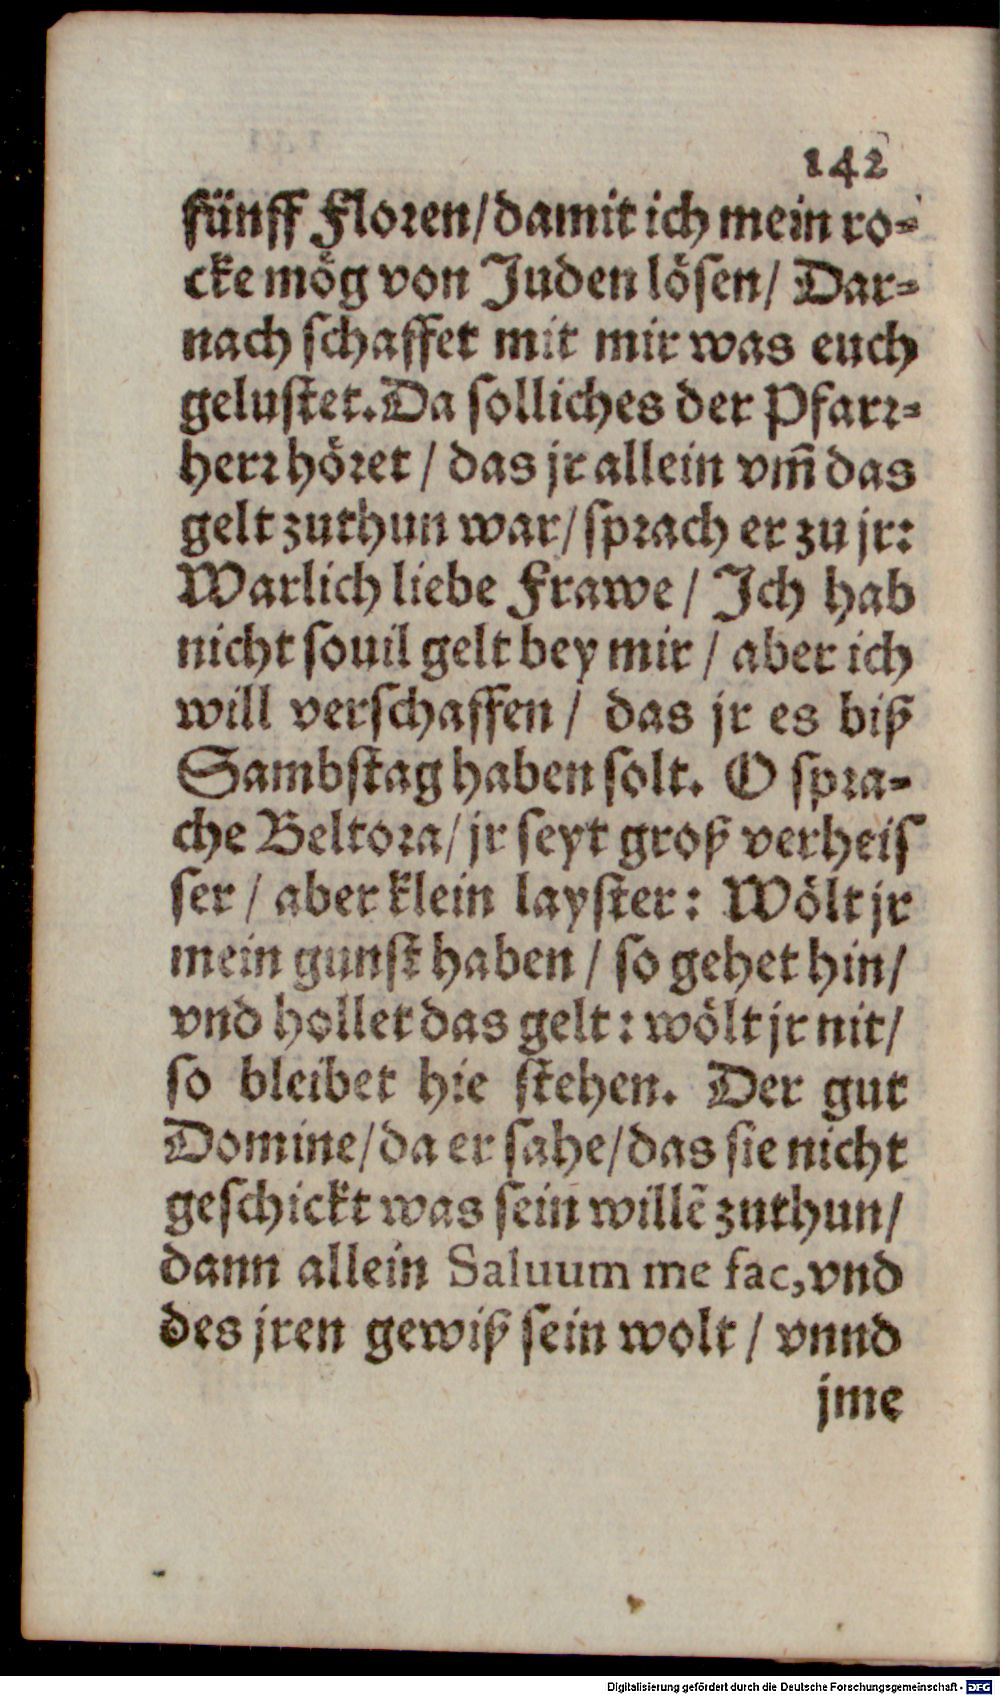 142
fünff Floren/damit ich mein ro-
cke mög von Juden lösen/ Dar-
nach schaffet mit mir was euch
gelustet. Da solliches der Pfarr-
herr höret / das jr allein vm̃ das
gelt zuthun war/ sprach er zu jr:
Warlich liebe Frawe / Ich hab
nicht souil gelt bey mir / aber ich
will verschaffen / das jr es biß
Sambstag haben solt. O spra-
che Beltora/ jr seyt groß verheis
ser / aber klein layster: Wölt jr
mein gunst haben / so gehet hin/
vnd hollet das gelt: wölt jr nit/
so bleibet hie stehen. Der gut
Domine/da er sahe/das sie nicht
geschickt was sein willẽ zuthun/
dann allein Saluum me fac, vnd
des jren gewiß sein wolt / vnnd
jme
Digitalisierung gefördert durch die Deutsche Forschungsgemeinschaft - DFG